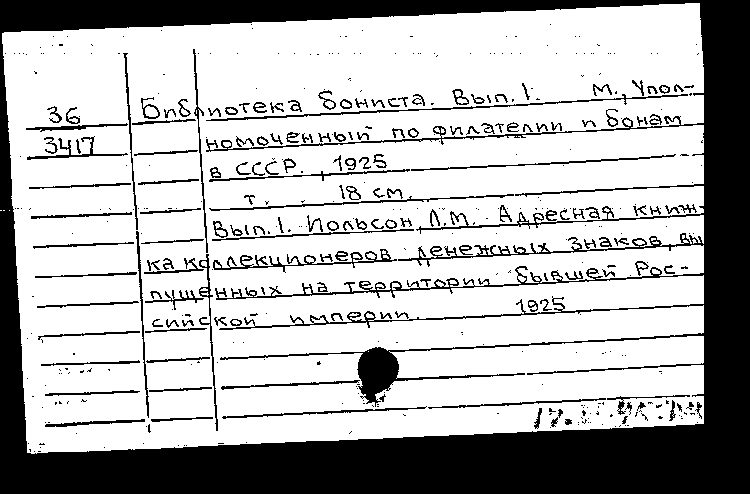 36
3417
Библиотека бониста. Вып. 1. М., Упол-
номоченный по филателии и бонам
в СССР., 1925
т. 18 см.
Вып. 1. Иольсон, Л.М. Адресная книж-
ка коллекционеров денежных знаков, вы
пущенных на территории бывшей Рос-
сийской империи. 1925